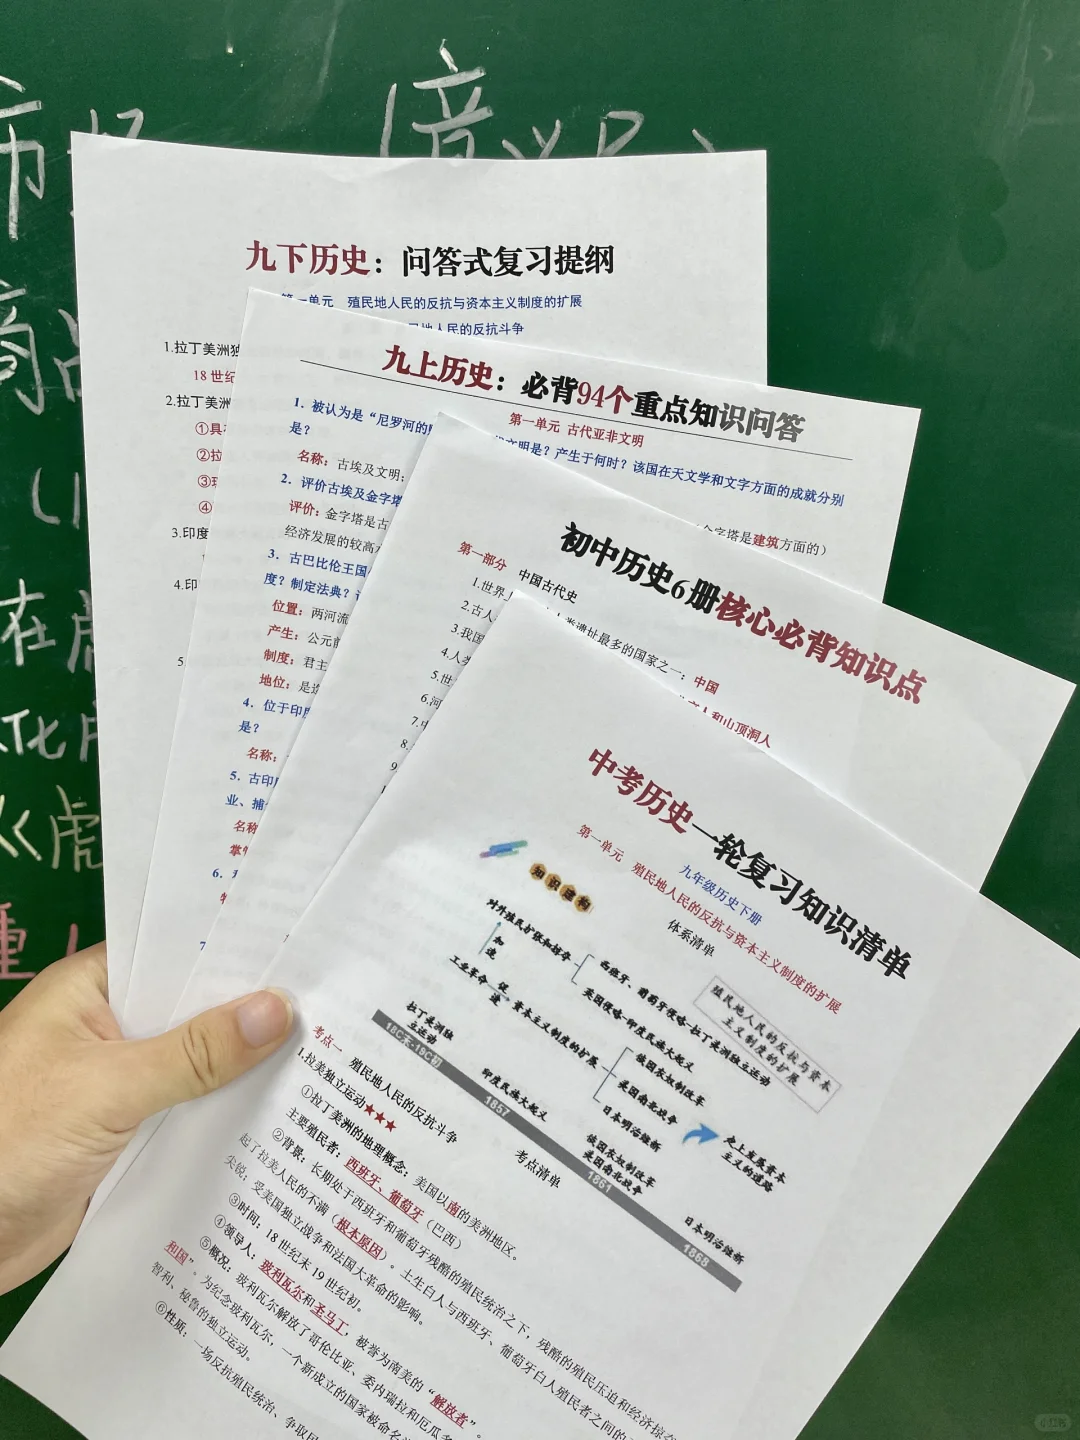 倍
商品
在虎
化
《虎
重
九下历史：问答式复习提纲
第一单元 殖民地人民的反抗与资本主义制度的扩展
民地人民的反抗斗争
1.拉丁美洲独
18世纪
2.拉丁美洲
①具
②拉
③
④
3.印度
4.印
5
九上历史：必背94个重点知识问答
第一单元 古代亚非文明
1. 被认为是“尼罗河的
文明是？产生于何时？该国在天文学和文字方面的成就分别
是？
名称：古埃及文明；
字塔是建筑方面的）
2. 评价古埃及金字塔
评价：金字塔是古
经济发展的较高
3. 古巴比伦王国
度？制定法典？
位置：两河流
产生：公元前
制度：君主
地位：是迄
4. 位于印度
是？
名称：
5. 古印度
业、捕
名称
掌
6.
7
初中历史6册核心必背知识点
第一部分 中国古代史
1.世界上
人类遗址最多的国家之一：中国
2.古人
人和山顶洞人
3.我国
4.人类
5.世
6.河
7.
8.
9
中考历史一轮复习知识清单
九年级历史下册
第一单元 殖民地人民的反抗与资本主义制度的扩展
体系清单
知识结构
殖民地人民的反抗与资本
主义制度的扩展
对外殖民扩张和掠夺
西班牙、葡萄牙侵略-拉丁美洲独立运动
英国侵略-印度民族大起义
加速
工业革命
促进
资本主义制度的扩展
俄国农奴制改革
美国南北战争
日本明治维新
走上发展资本
主义的道路
拉丁美洲独
立运动
18C末-19C初
印度民族大起义
1857
俄国农奴制改革
美国南北战争
1861
日本明治维新
1868
考点清单
考点一 殖民地人民的反抗斗争
1.拉美独立运动★★★
①拉丁美洲的地理概念：美国以南的美洲地区。
主要殖民者：西班牙、葡萄牙（巴西）
②背景：长期处于西班牙和葡萄牙残酷的殖民统治之下，残酷的殖民压迫和经济掠夺
起了拉美人民的不满（根本原因）。土生白人与西班牙、葡萄牙白人殖民者之间的
尖锐；受美国独立战争和法国大革命的影响。
③时间：18世纪末19世纪初。
④领导人：玻利瓦尔和圣马丁，被誉为南美的“解放者”。
⑤概况：玻利瓦尔解放了哥伦比亚、委内瑞拉和厄瓜多
和国”。为纪念玻利瓦尔，一个新成立的国家被命名
智利、秘鲁的独立运动。
⑥性质：一场反抗殖民统治、争取民
小红书